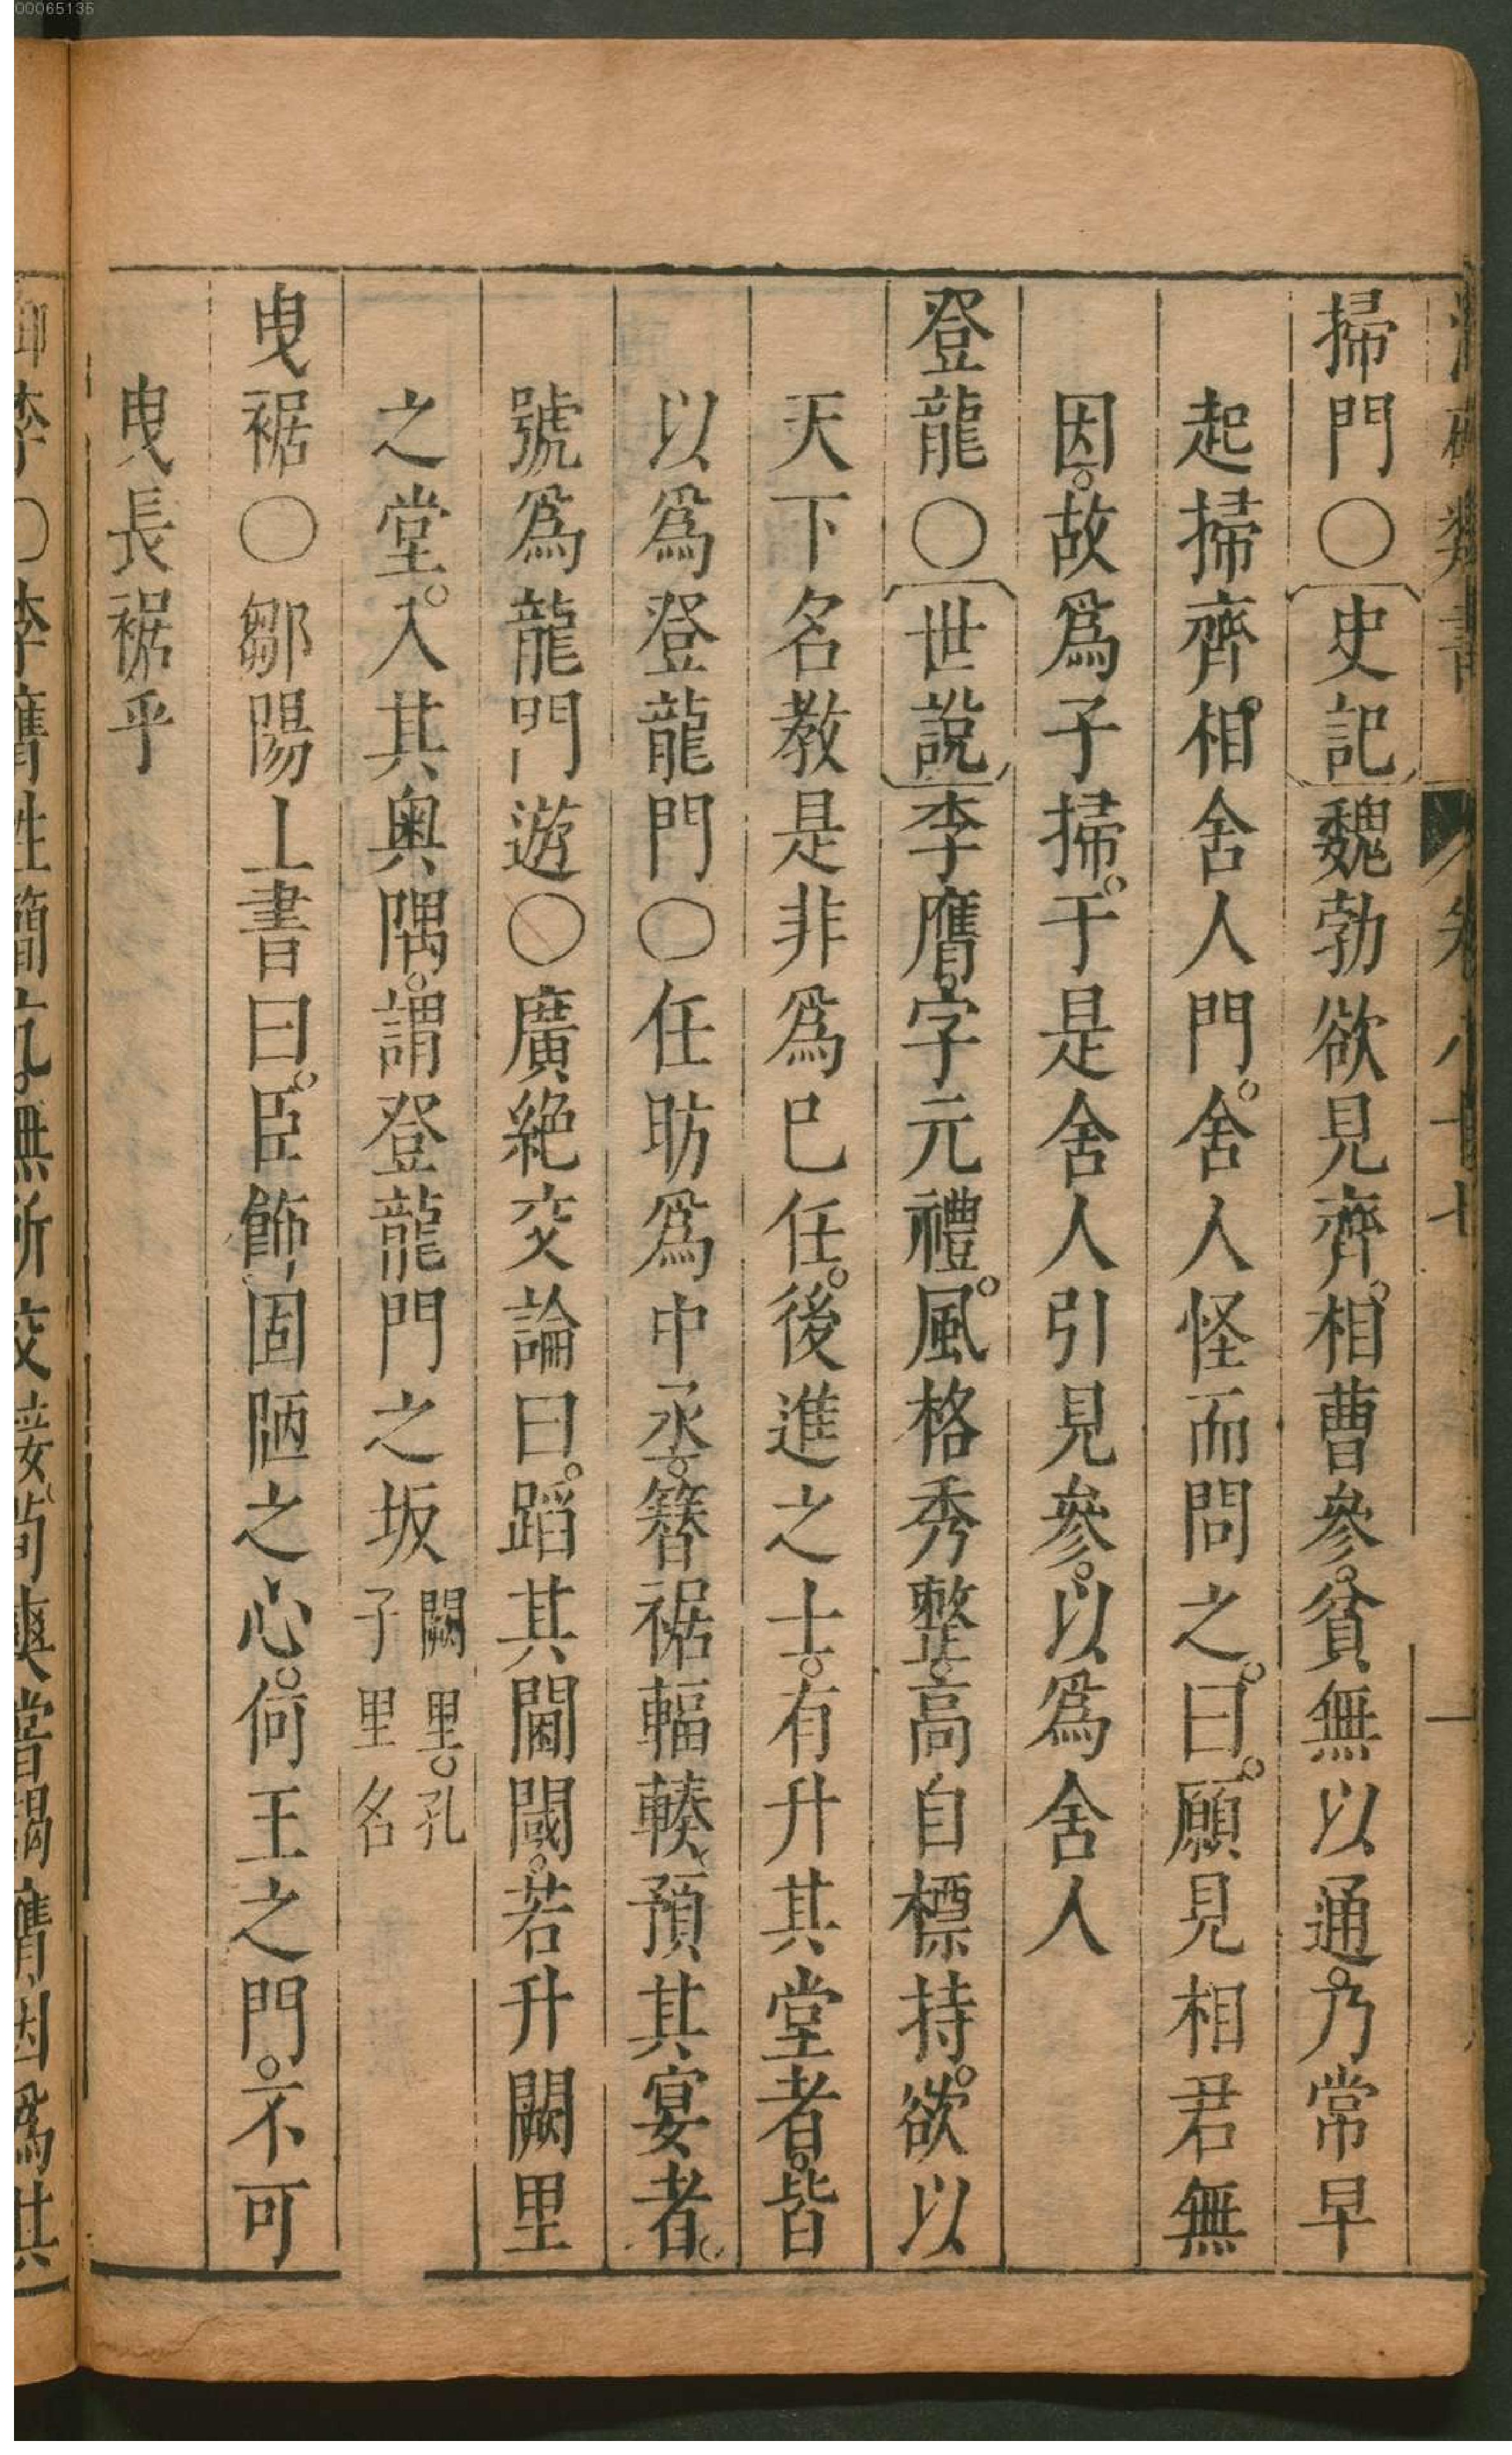 00065135
類書 卷八十七 一
掃門○史記魏勃欲見齊相曹參。貧無以通。乃常早
起掃齊相舍人門。舍人怪而問之。曰。願見相君無
因。故爲子掃。于是舍人引見參。以爲舍人
登龍○世說李膺。字元禮。風格秀整。高自標持。欲以
天下名教是非爲巳任。後進之士。有升其堂者。皆
以爲登龍門○任昉爲中丞。簪裾輻輳、預其宴者。
號爲龍門遊○廣絶交論曰。蹈其閫閾。若升闕里
之堂。入其奥隅。謂登龍門之坂闕里。孔子里名
曳裾○鄒陽上書曰。臣飾固陋之心。何王之門。不可
曳長裾乎